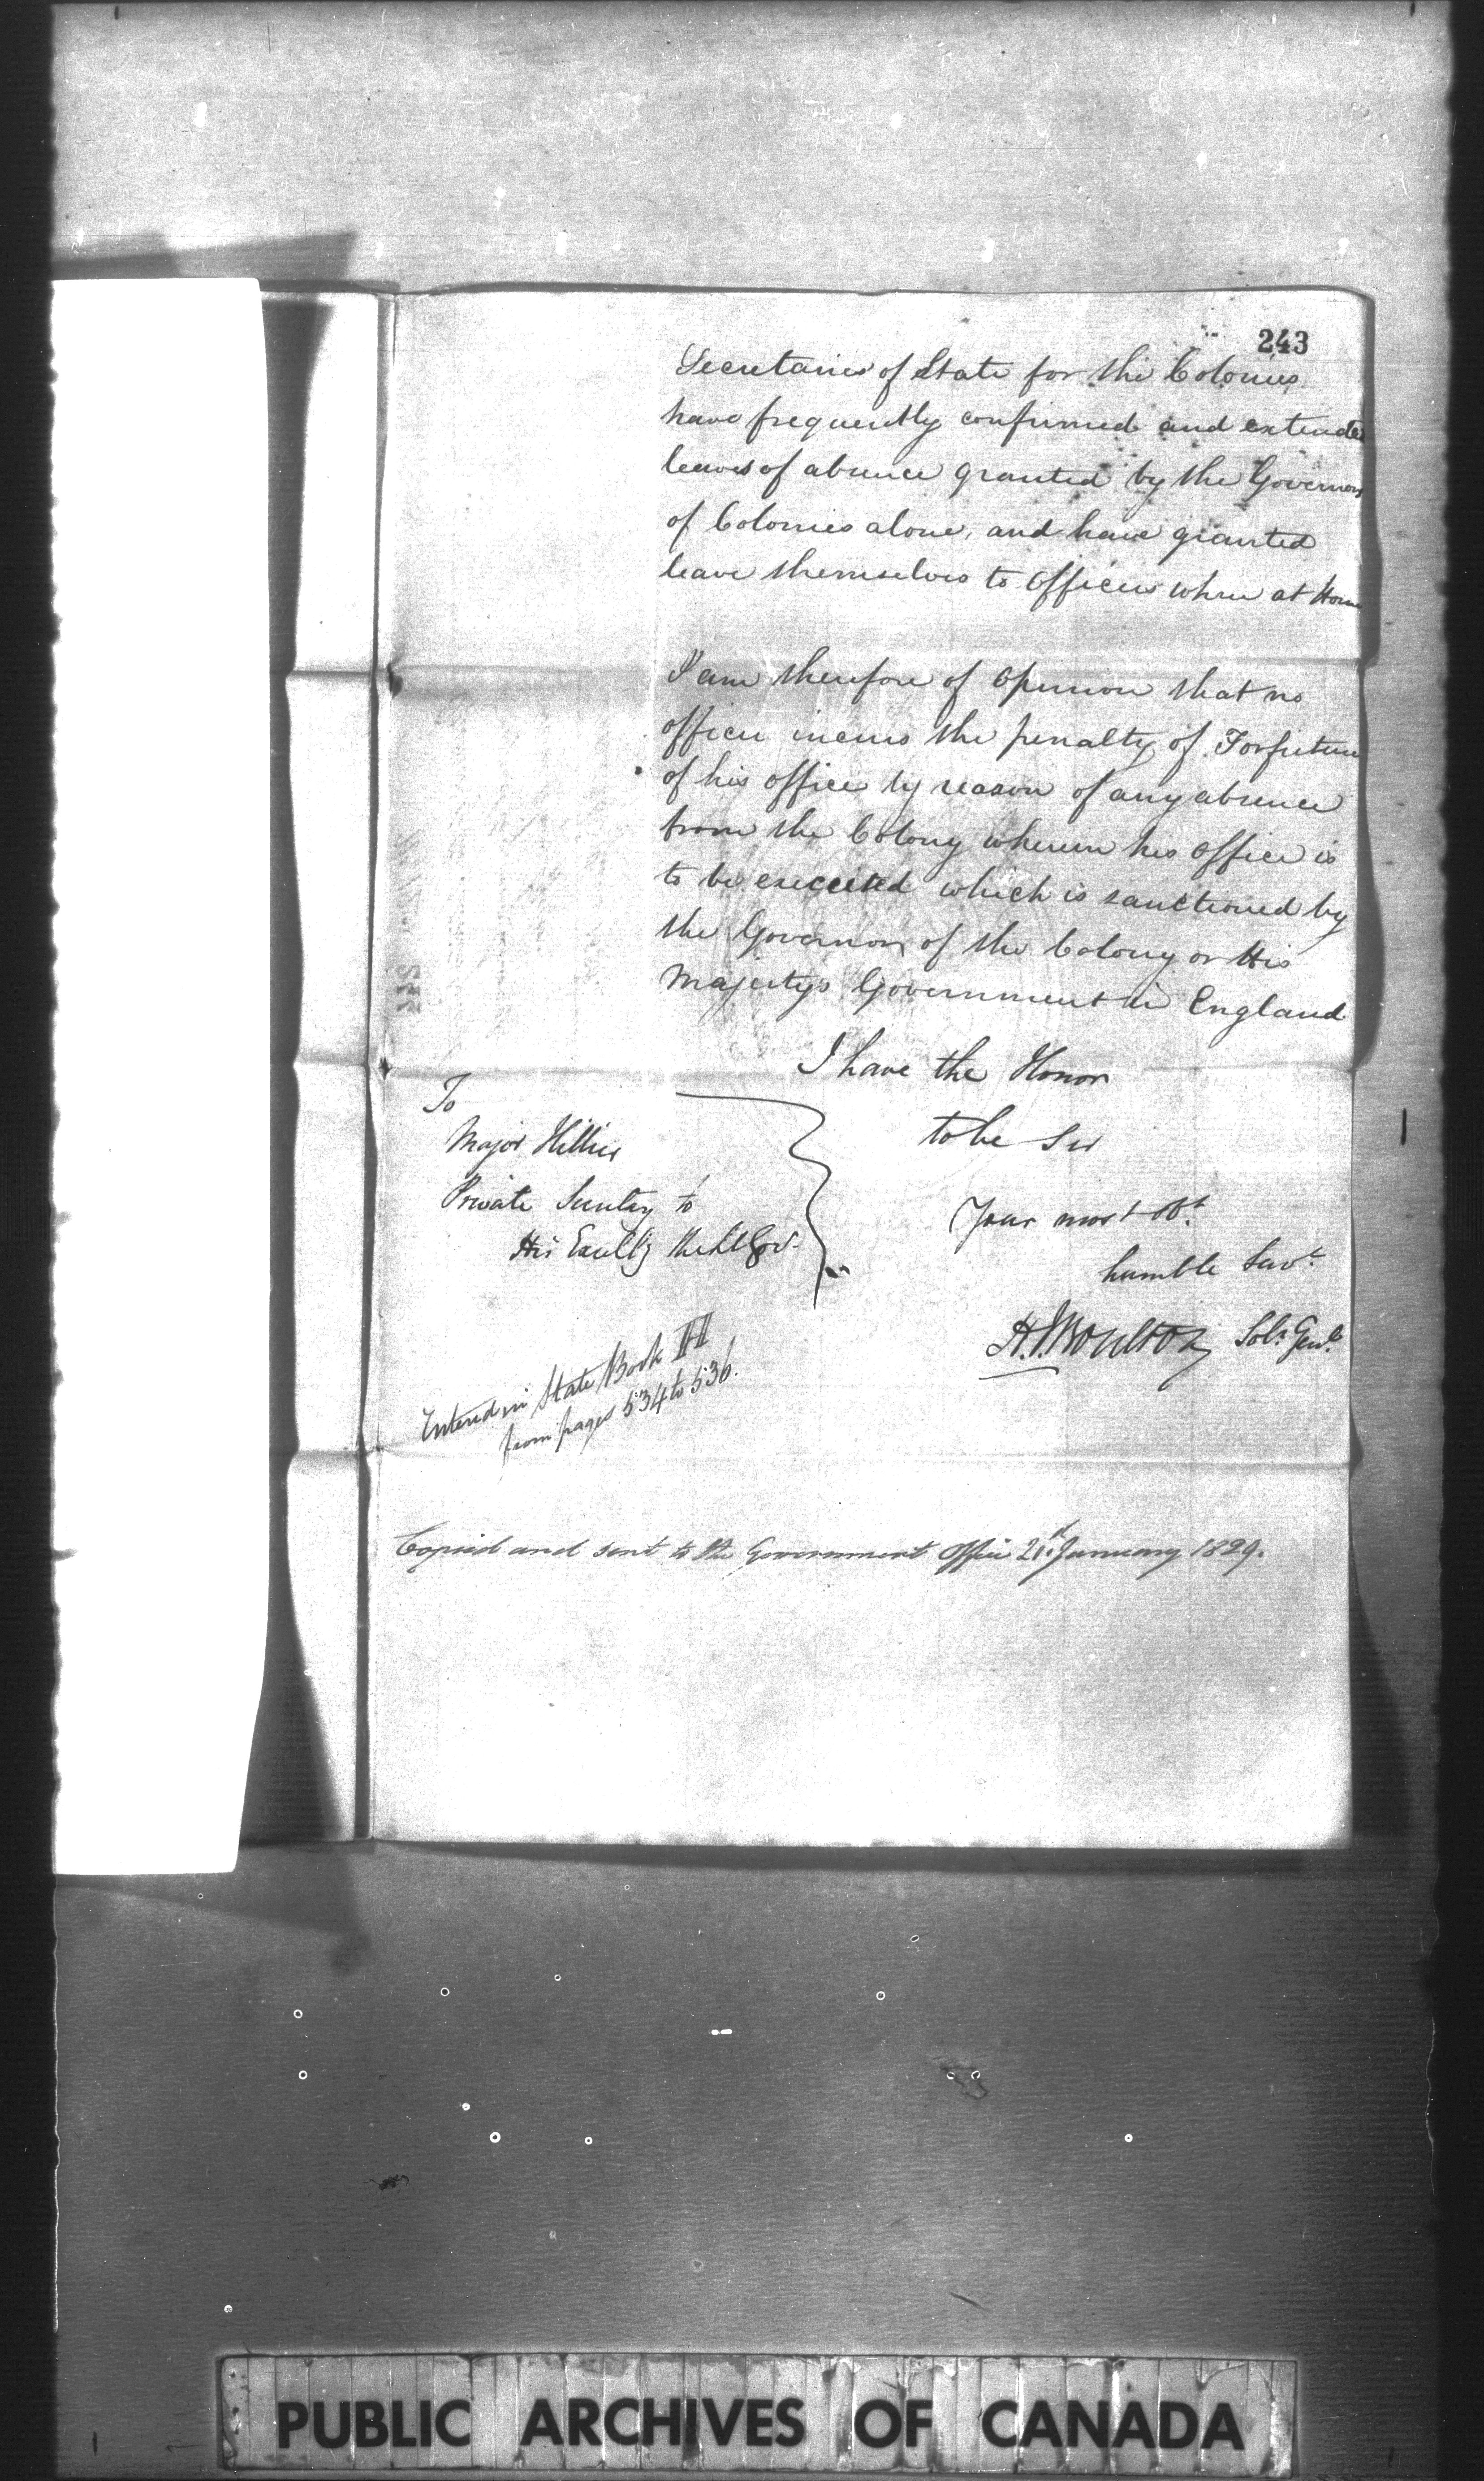 243
Secretaries of State for the Colonies
have frequently confirmed and extended
leaves of absence granted by the Governors
of Colonies alone, and have granted
leave themselves to officers when at Home
I am therefore of Opinion that no
officer incurs the penalty of Forfeiture
of his office by reason of any absence
from the Colony wherein his office is
to be executed which is sanctioned by
the Governor of the Colony or His
Majestys Government in England
I have the Honor
to be Sir
Your most Obt
humble Servt
H. J. Boulton Solr Genl
To
Major Hillier
Private Secretary to
His Excelly the Lt Gov.
Entered in State Book
from pages 534 to 536.
Copied and sent to the Government Office 21st January 1829.
PUBLIC ARCHIVES OF CANADA